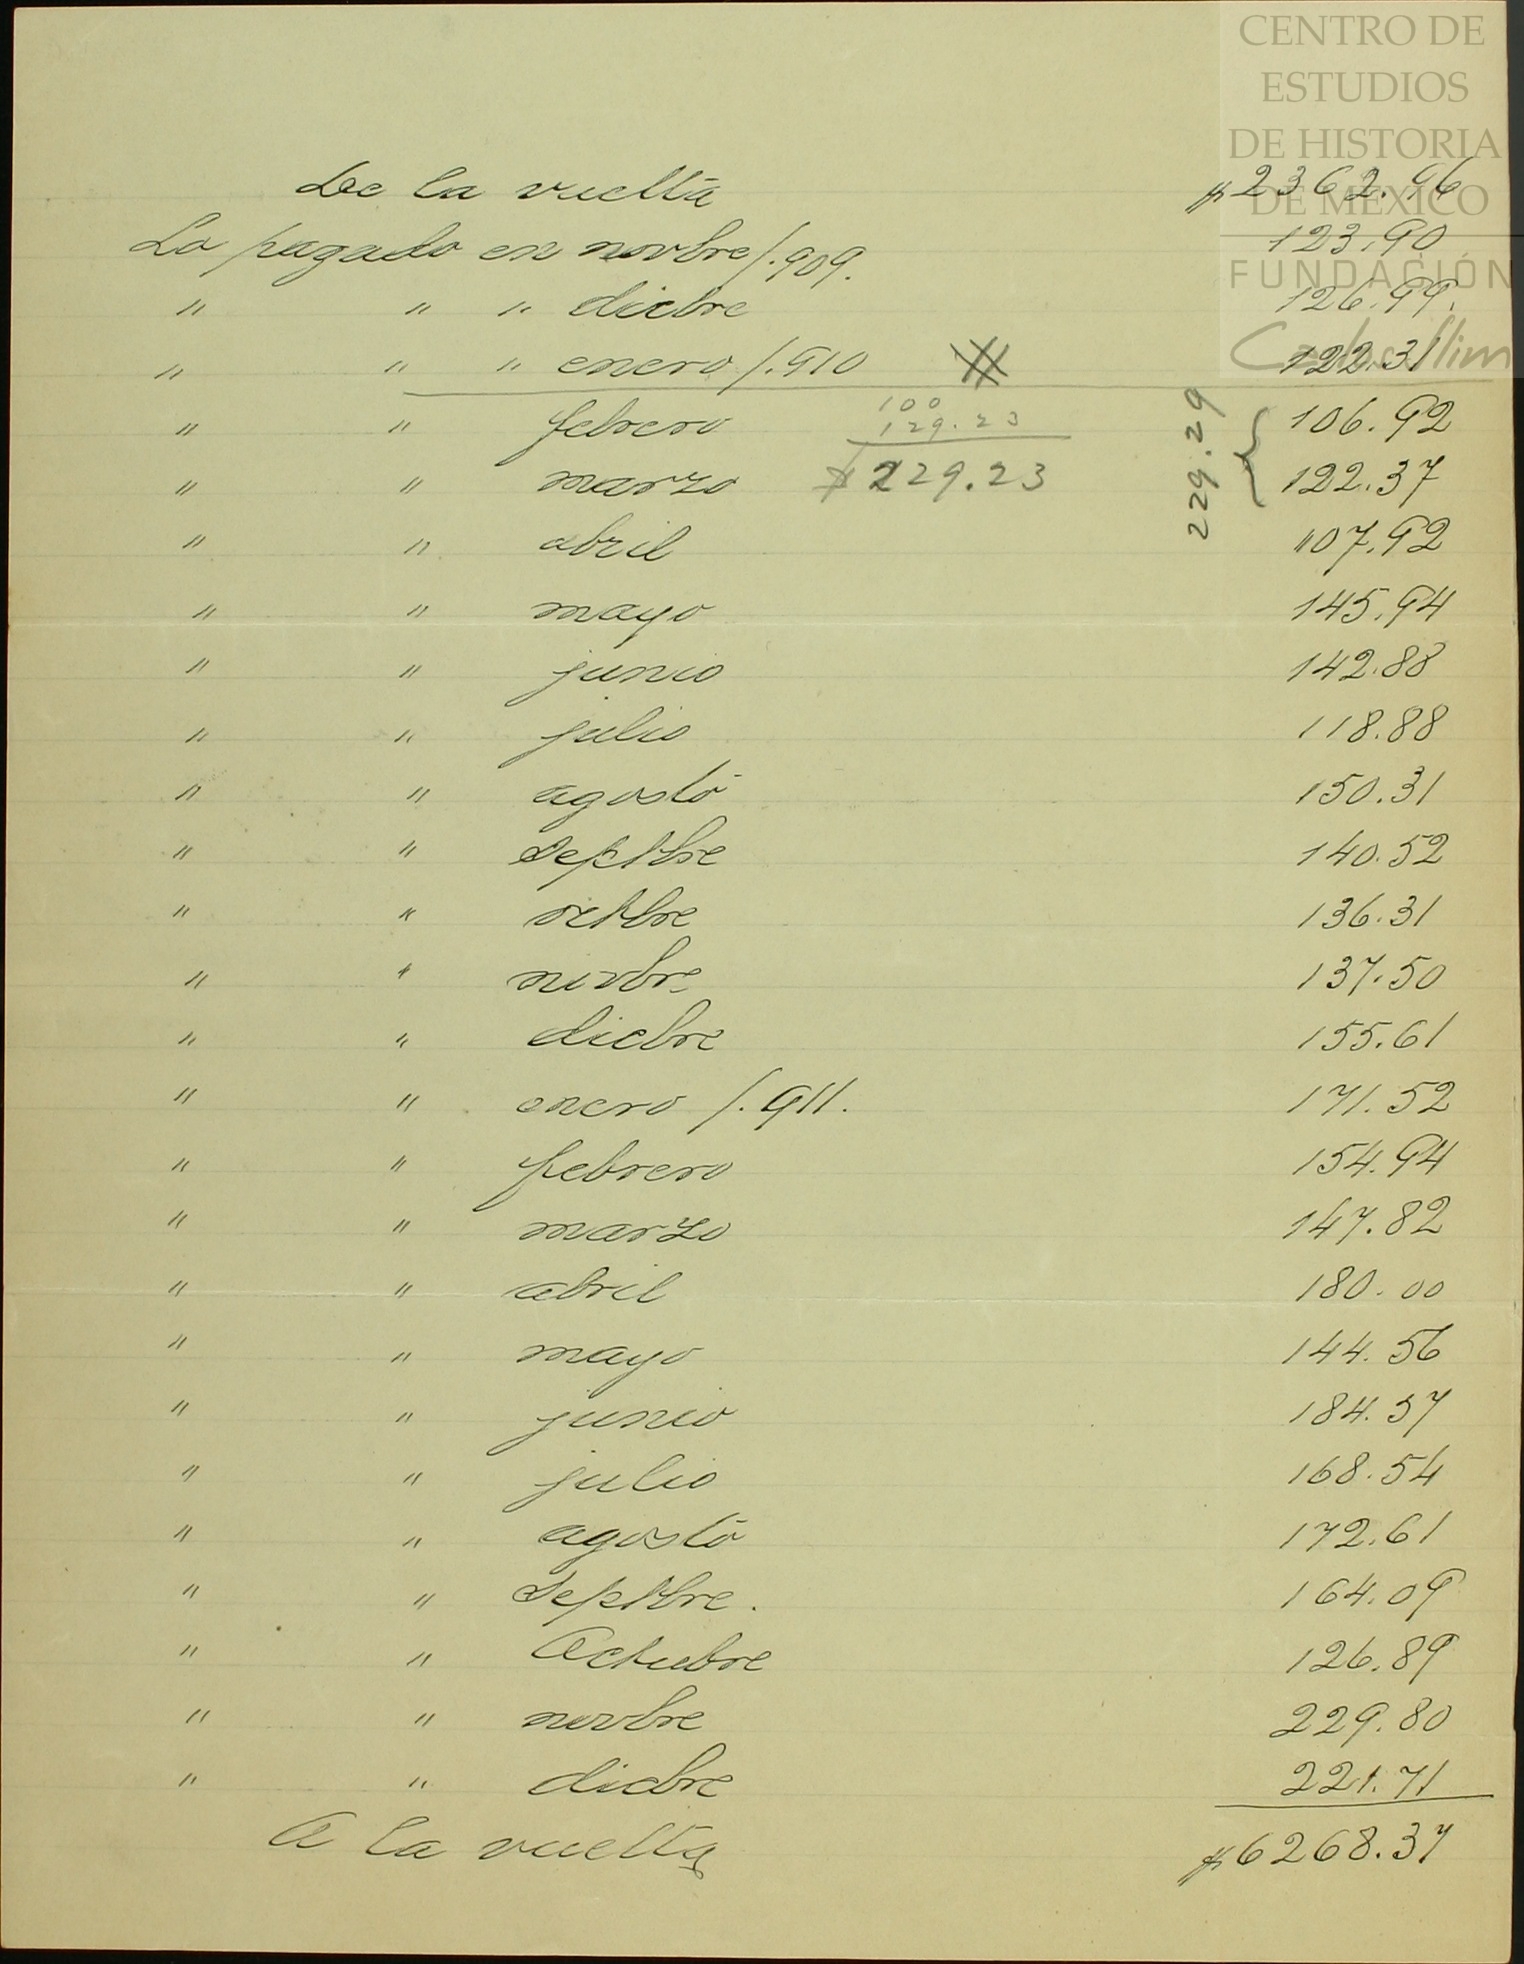 CENTRO DE
ESTUDIOS
DE HISTORIA
DE MÉXICO
FUNDACIÓN
Carlos Slim
De la vuelta $2362.96
Lo pagado en novbre/.909. 123.90
" " " dicbre 126.99.
" " " enero/.910 122.31
" " febrero 106.92
100
129.23
" " marzo $229.23 122.37
229.29
" " abril 107.92
" " mayo 145.94
" " junio 142.88
" " julio 118.88
" " agosto 150.31
" " septbre 140.52
" " octbre 136.31
" " novbre 137.50
" " dicbre 155.61
" " enero /.911. 171.52
" " febrero 154.94
" " marzo 147.82
" " abril 180.00
" " mayo 144.56
" " junio 184.57
" " julio 168.54
" " agosto 172.61
" " septbre. 164.09
" " Octubre 126.89
" " novbre 229.80
" " dicbre 221.71
A la vuelta $6268.37